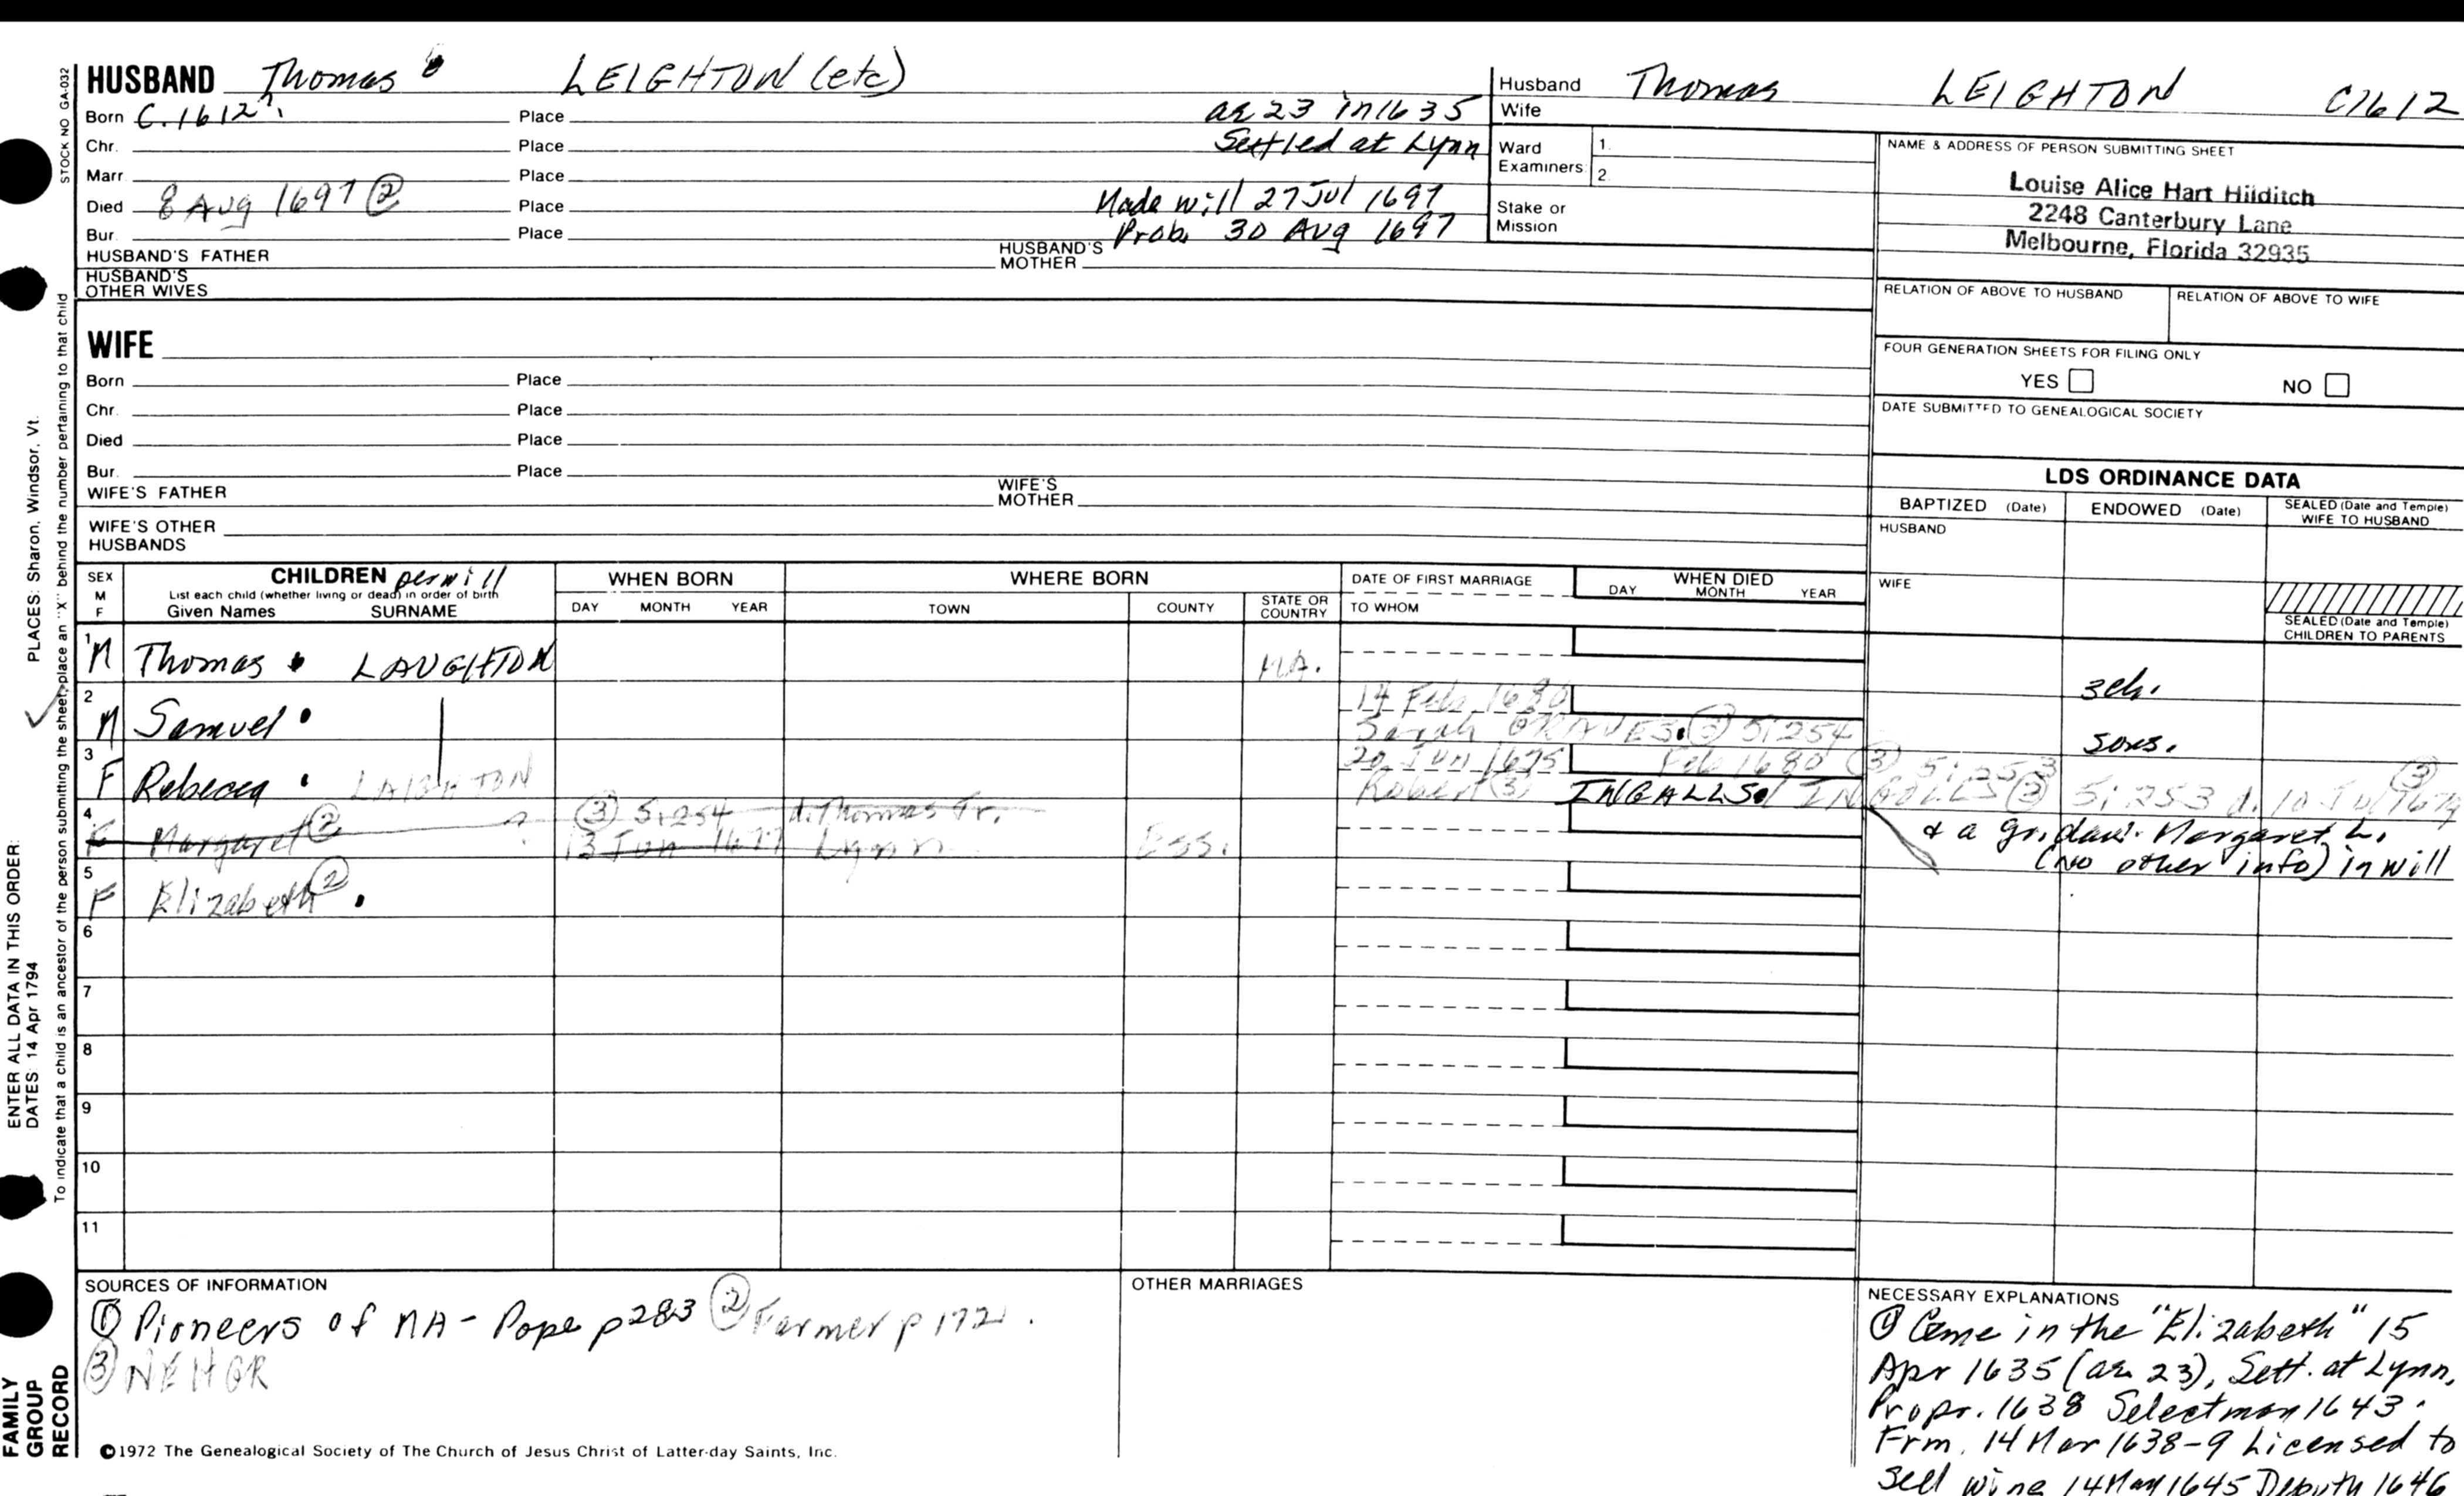 HUSBAND Thomas LEIGHTON (etc)
Born C. 1612? Place ae 23 in 1635
Chr. Place Settled at Lynn
Marr Place
Died 8 Aug 1697 ② Place Made will 27 Jul 1697
Bur. Place Prob. 30 Aug 1697
HUSBAND'S FATHER HUSBAND'S MOTHER
HUSBAND'S OTHER WIVES
Husband Thomas LEIGHTON C1612
Wife
Ward Examiners 1. 2.
Stake or Mission
NAME & ADDRESS OF PERSON SUBMITTING SHEET
Louise Alice Hart Hilditch
2248 Canterbury Lane
Melbourne, Florida 32935
RELATION OF ABOVE TO HUSBAND RELATION OF ABOVE TO WIFE
FOUR GENERATION SHEETS FOR FILING ONLY
YES NO
DATE SUBMITTED TO GENEALOGICAL SOCIETY
WIFE
Born Place
Chr. Place
Died Place
Bur. Place
WIFE'S FATHER WIFE'S MOTHER
WIFE'S OTHER HUSBANDS
LDS ORDINANCE DATA
BAPTIZED (Date) ENDOWED (Date) SEALED (Date and Temple) WIFE TO HUSBAND
HUSBAND
WIFE
SEALED (Date and Temple) CHILDREN TO PARENTS
SEX M F
CHILDREN per will
List each child (whether living or dead) in order of birth
Given Names SURNAME
WHEN BORN
DAY MONTH YEAR
WHERE BORN
TOWN COUNTY STATE OR COUNTRY
DATE OF FIRST MARRIAGE
TO WHOM
WHEN DIED
DAY MONTH YEAR
1 M Thomas LAUGHTON MA.
3ch.
2 M Samuel 14 Feb 1680
Sarah GRAVES ③ 5:254
sons.
3 F Rebecca LAIGHTON 20 Jun 1675 Feb 1680 ③ 5:253
Robert ③ INGALLS INGALLS ③ 5:253 d. 10 Jul
4 F Margaret ② ? ③ 5:254 d. Thomas Jr.
13 Jun 1677 Lynn Ess.
& a gr. dau. Margaret L.
(No other info) in will
5 F Elizabeth ②
6
7
8
9
10
11
SOURCES OF INFORMATION
① Pioneers of MA - Pope p283 ② Farmer p172.
③ NEHGR
OTHER MARRIAGES
NECESSARY EXPLANATIONS
① Came in the "Elizabeth" 15
Apr 1635 (ae 23), Sett. at Lynn,
Propr. 1638 Selectman 1643.
Frm. 14 Mar 1638-9 Licensed to
sell wine 14 May 1645 Deputy 1646
©1972 The Genealogical Society of The Church of Jesus Christ of Latter-day Saints, Inc.
STOCK NO GA-032
To indicate that a child is an ancestor of the person submitting the sheet, place an "X" behind the number pertaining to that child
ENTER ALL DATA IN THIS ORDER:
DATES: 14 Apr 1794
PLACES: Sharon, Windsor, Vt.
FAMILY
GROUP
RECORD